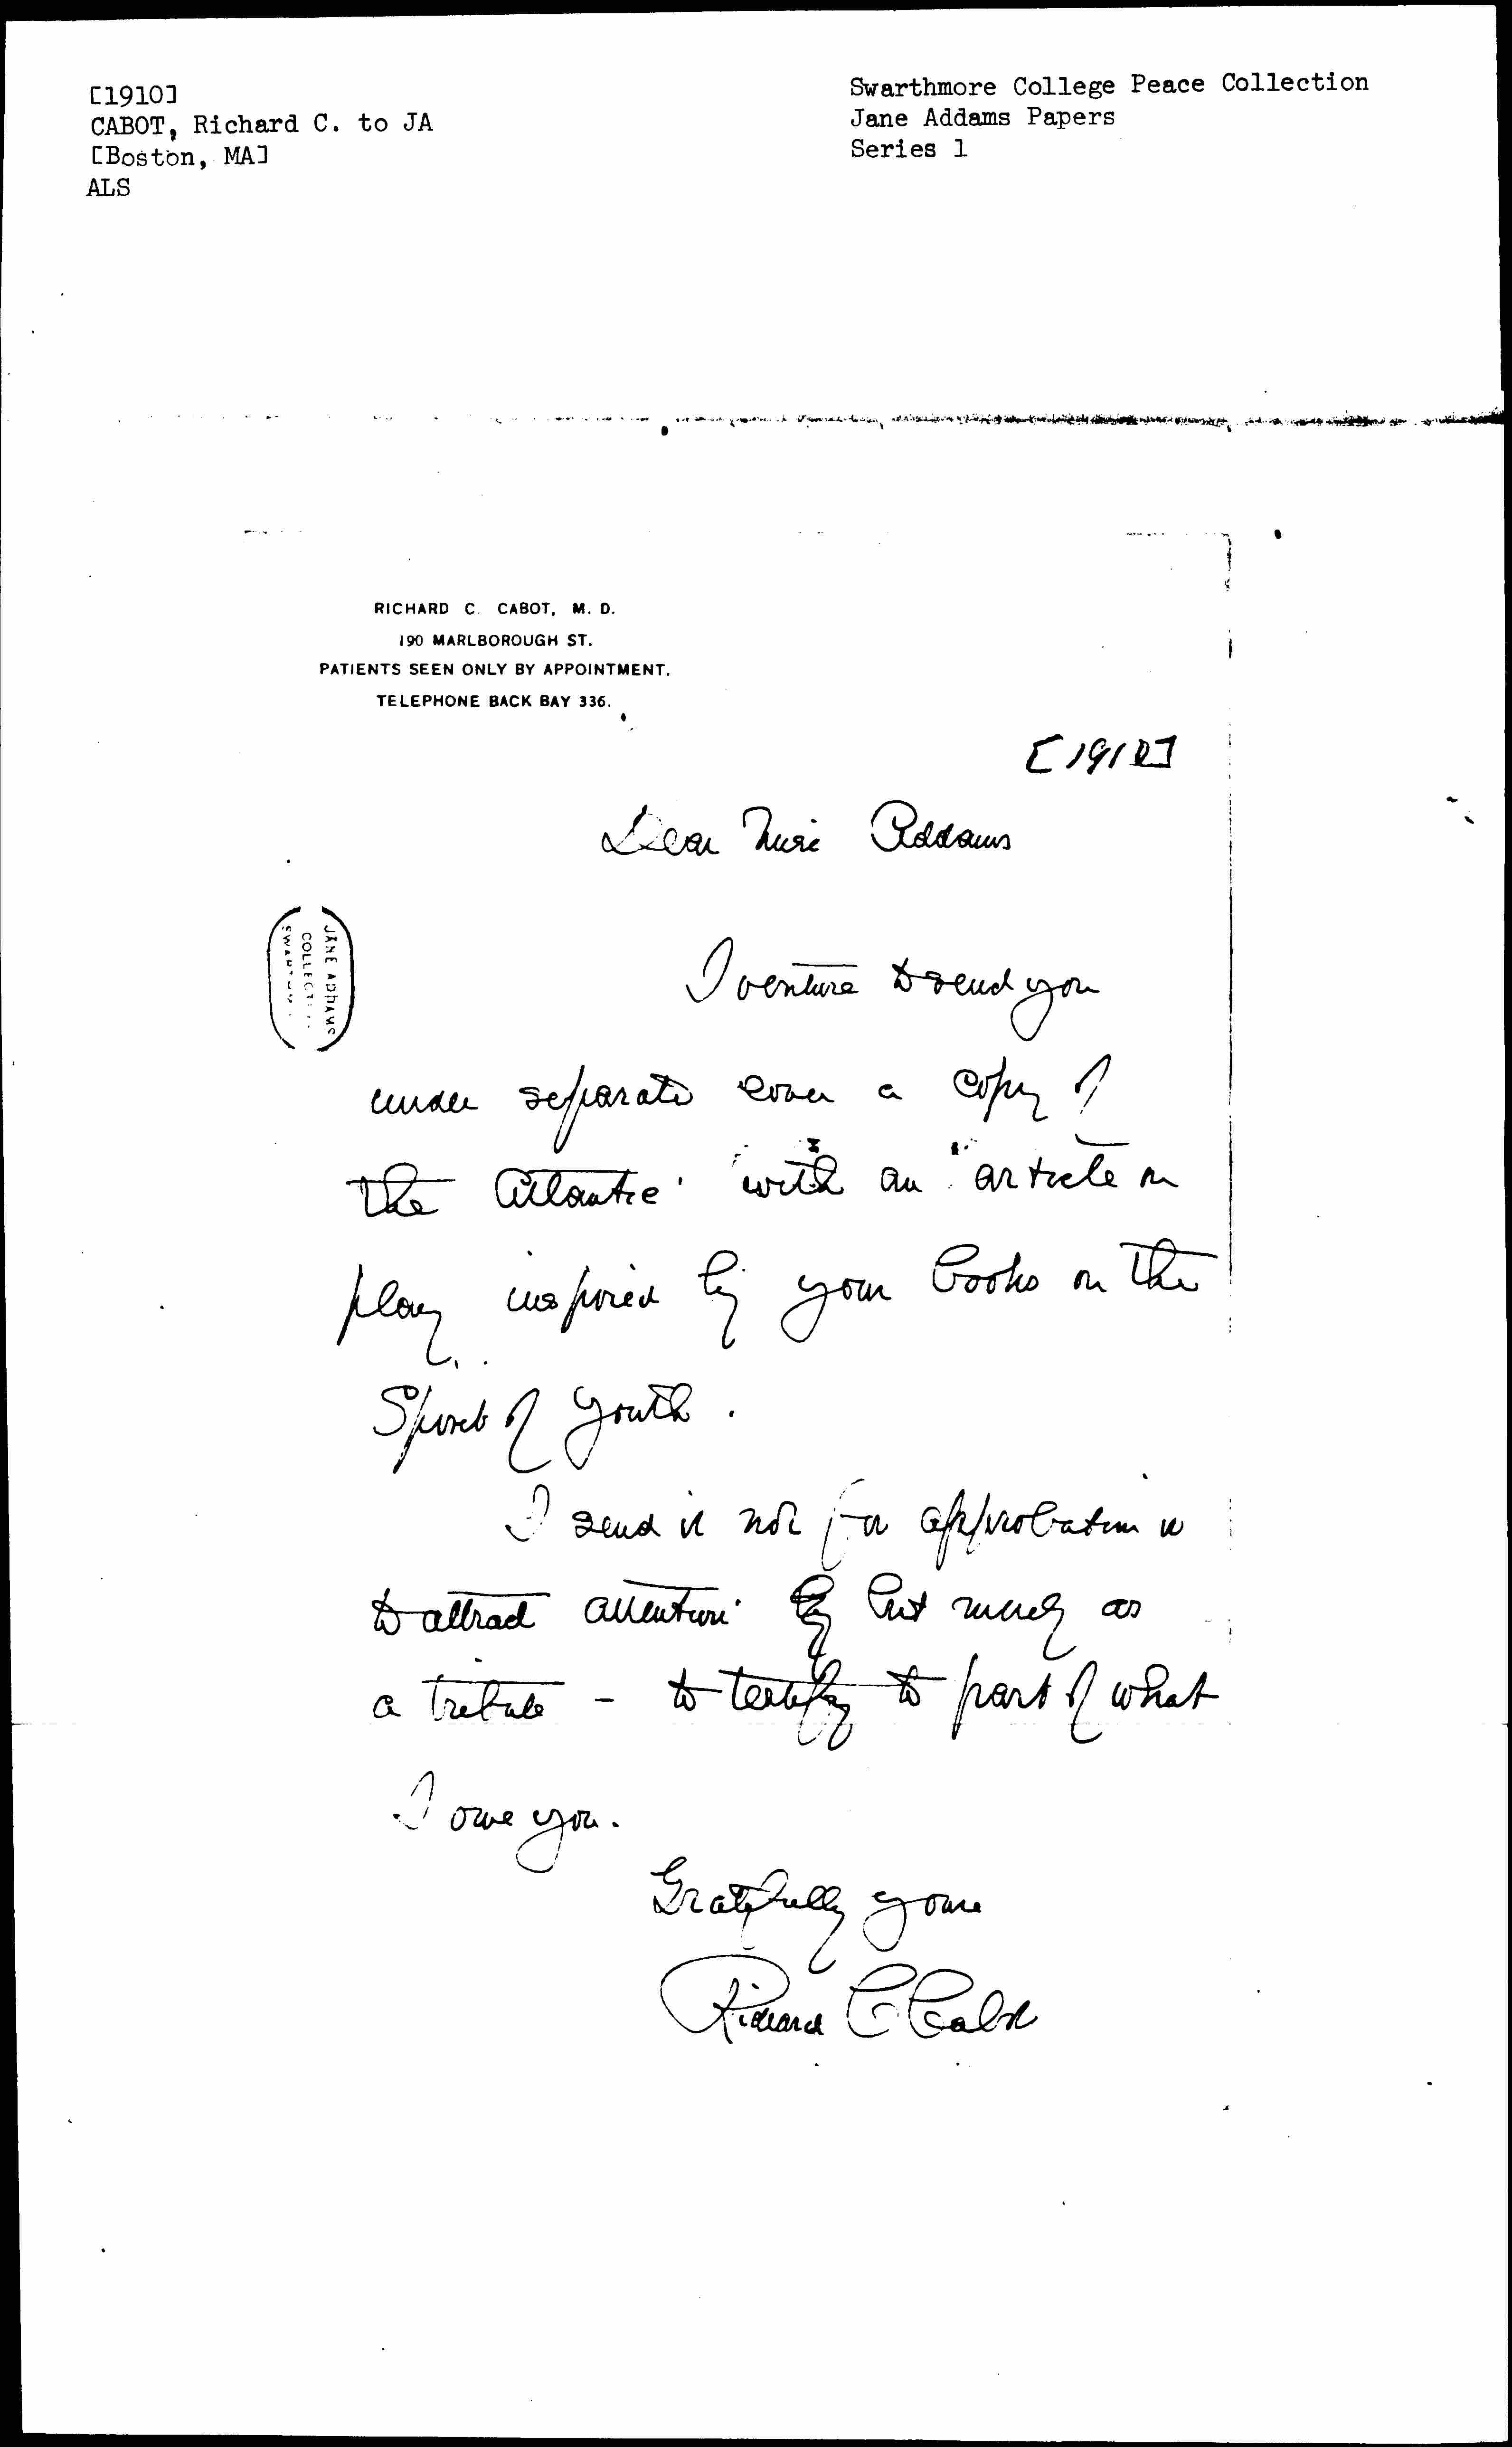 [1910]
CABOT, Richard C. to JA
[Boston, MA]
ALS
Swarthmore College Peace Collection
Jane Addams Papers
Series 1
RICHARD C. CABOT, M. D.
190 MARLBOROUGH ST.
PATIENTS SEEN ONLY BY APPOINTMENT.
TELEPHONE BACK BAY 336.
[1910]
Dear Miss Addams
JANE ADDAMS
I venture to send you
under separate cover a copy of
the Atlantic with an article on
play inspired by your books on the
Spirit of Youth.
I send it not for approbation or
to attract attention but merely as
a tribute - to testify to part of what
I owe you.
Gratefully yours
Richard C Cabot